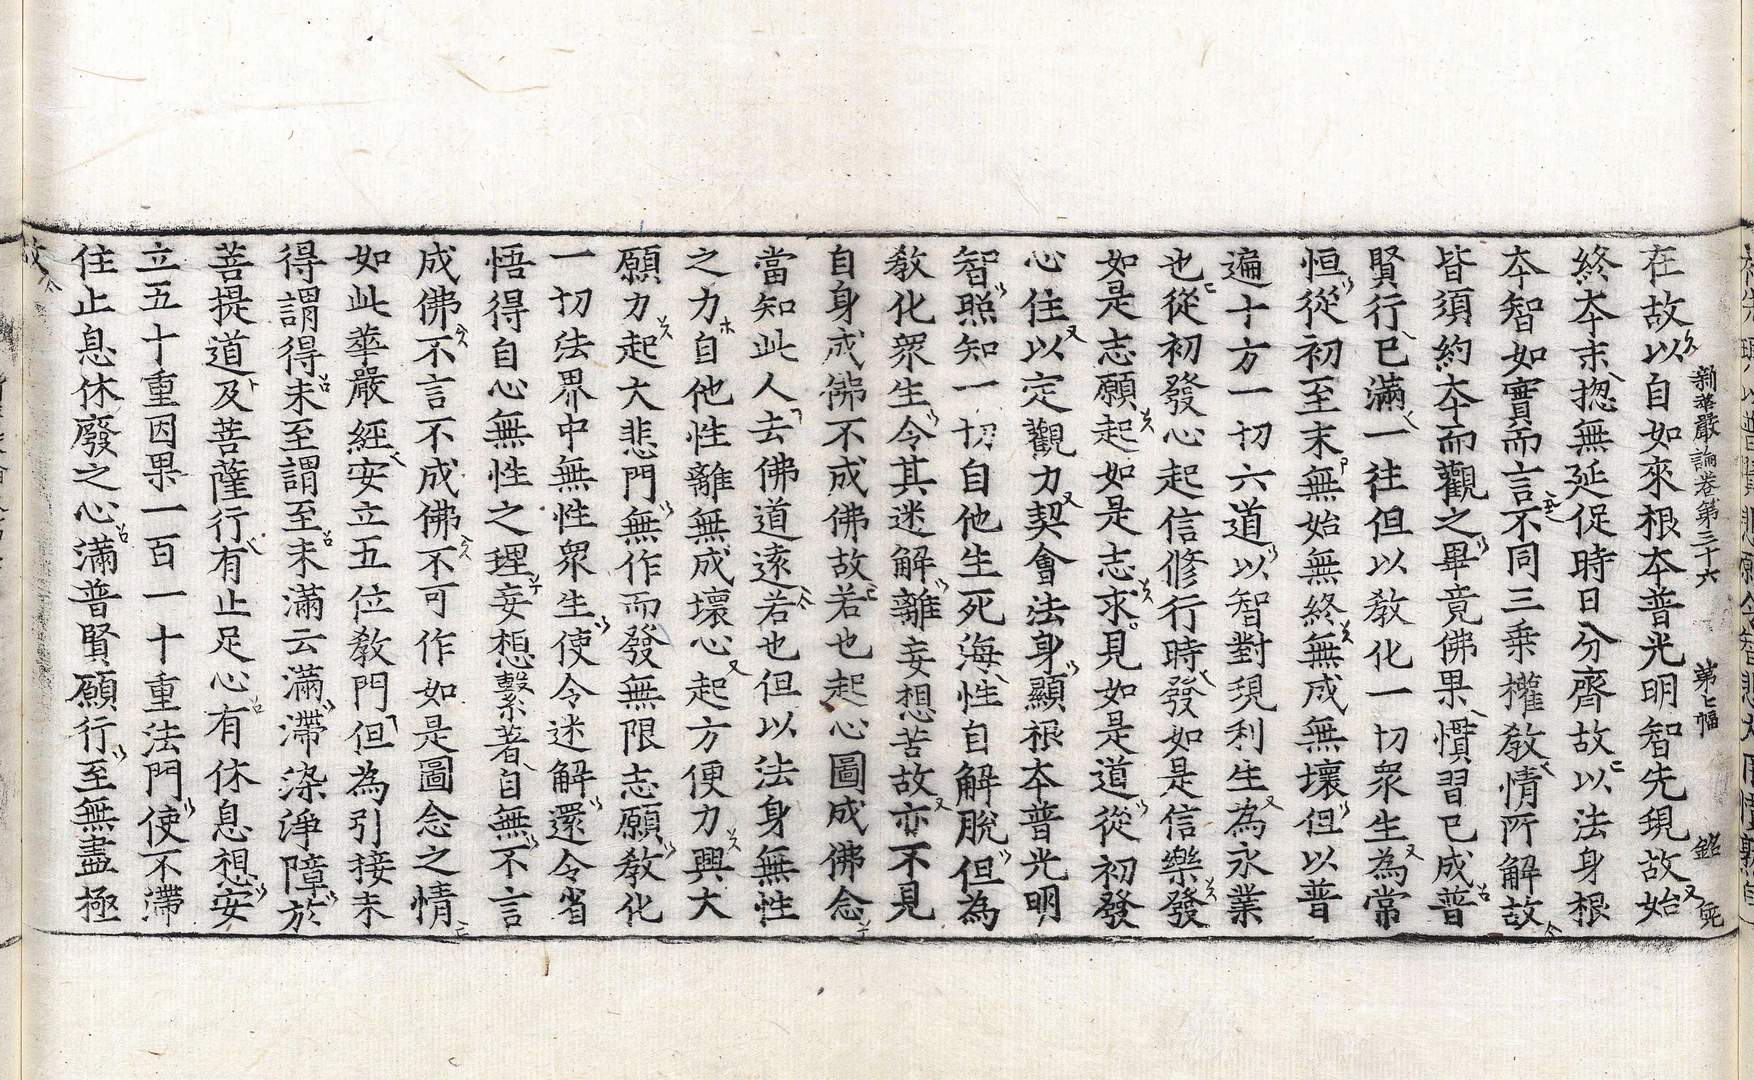 新華嚴論卷第三十六 第七幅 銘 兠
在故以自如來根本普光明智先現故始
終本末揔無延促時日分齊故以法身根
本智如實而言不同三乗權敎情所解故
皆須約本而觀之畢竟佛果慣習已成普
賢行已滿一往但以敎化一切衆生為常
恒從初至末無始無終無成無壞但以普
遍十方一切六道以智對現利生為永業
也從初發心起信修行時發如是信樂發
如是志願起如是志求見如是道從初發
心住以定觀力契會法身顯根本普光明
智照知一切自他生死海性自解脫但為
敎化衆生令其迷解離妄想苦故亦不見
自身成佛不成佛故若也起心圖成佛念
當知此人去佛道遠若也但以法身無性
之力自他性離無成壞心起方便力興大
願力起大悲門無作而發無限志願敎化
一切法界中無性衆生使令迷解還令省
悟得自心無性之理妄想繫著自無不言
成佛不言不成佛不可作如是圖念之情
如此華嚴經安立五位敎門但為引接未
得謂得未至謂至未滿云滿滯染淨障於
菩提道及菩薩行有止足心有休息想安
立五十重因果一百一十重法門使不滯
住止息休廢之心滿普賢願行至無盡極
故